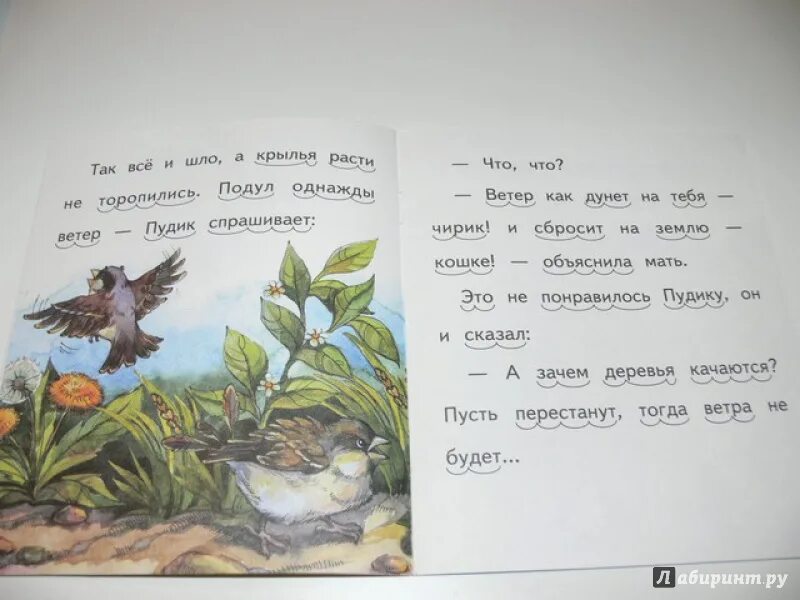 Так всё и шло, а крылья расти
не торопились. Подул однажды
ветер — Пудик спрашивает:
— Что, что?
— Ветер как дунет на тебя —
чирик! и сбросит на землю —
кошке! — объяснила мать.
Это не понравилось Пудику, он
и сказал:
— А зачем деревья качаются?
Пусть перестанут, тогда ветра не
будет...
Лабиринт.ру